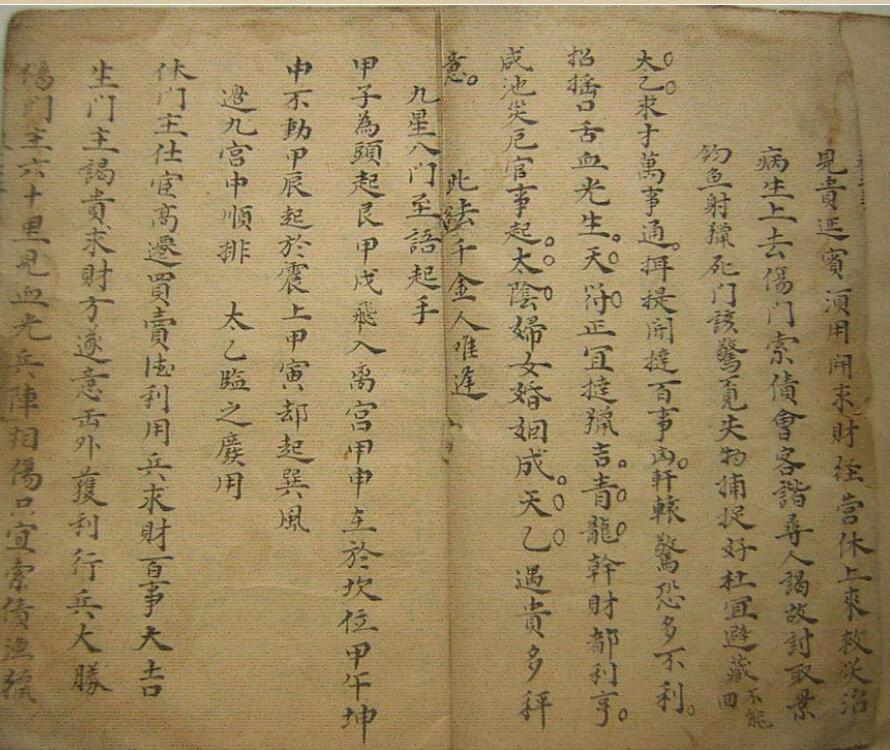 見貴延賓須用開求財經營休上來救災治
病生上去傷門索債會客諧尋人謁故討取景
釣魚射獵死門該驚覓失物捕捉好杜宜避藏不能回
太乙求才萬事通揖提開撻百事凶軒轅驚恐多不利
招搖口舌血光生天符正宜撻獵吉青龍幹財都利亨
咸池災厄官事起太陰婦女婚姻成天乙遇貴多秤
意 此法千金人唯逢
九星八門至語起手
甲子為頭起艮甲戌飛入离宮甲申立於坎位甲午坤
中不動甲辰起於震上甲寅却起巽風
邊九宮中順排 太乙臨之廢用
休門主仕宦高遷買賣利用兵求財百事大吉
生門主謁貴求財方遂意缶外獲利行兵大勝
傷門主六十里見血光兵陣相傷只宜索債